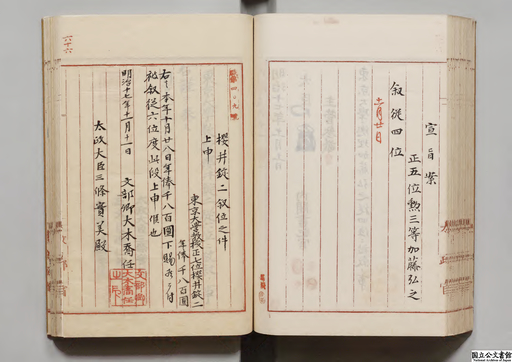 宣旨案
正五位勲三等加藤弘之
叙従四位
十一月廿日
櫻井錠二叙位之件
上申
東京大学教授正七位櫻井錠二
年俸千八百圓
右ハ本年十月廿八日年俸千八百圓下賜候ニ付
被叙従六位度此段上申候也
明治十七年十一月十一日
文部卿大木喬任
太政大臣三條實美殿
六十六
国立公文書館
National Archives of Japan